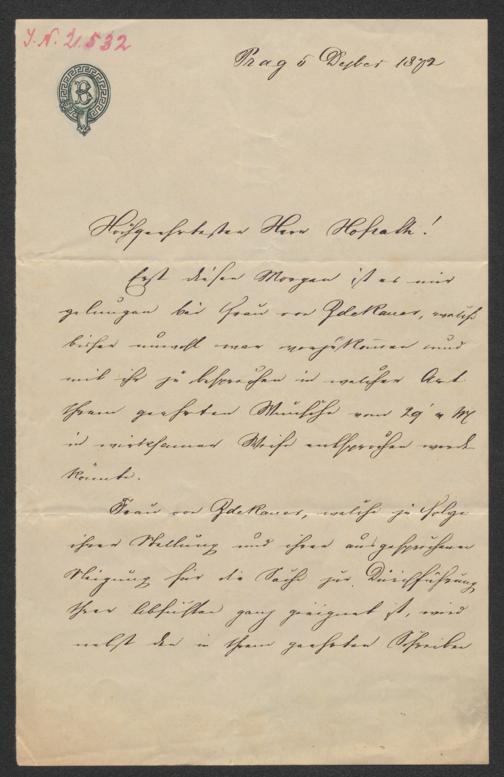 J. N. 21.532
Prag 5 Dezber 1872
B
Hochgeehrtester Herr Hofrath!
Erst diesen Morgen ist es mir
gelungen bei Frau von Zdekauer, welche
bisher unwohl war vorzukommen und
mit ihr zu besprechen in welcher Art
Ihrem geehrten Wunsche vom 29t v M
in wirksamer Weise entsprochen werden
könnte.
Frau von Zdekauer, welche zu Folge
ihrer Stellung und ihrer ausgesprochenen
Neigung für die Sache zur Durchführung
Ihrer Absichten ganz geeignet ist, wird
nebst den in Ihrem geehrten Schreiben